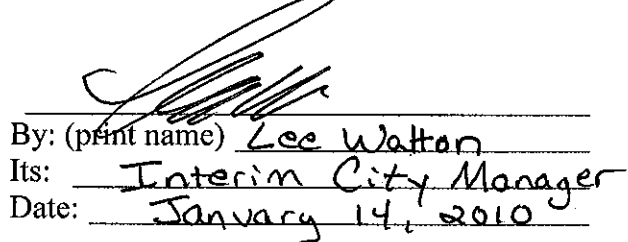 By: (print name) Lee Walton
Its: Interim City Manager
Date: January 14, 2010